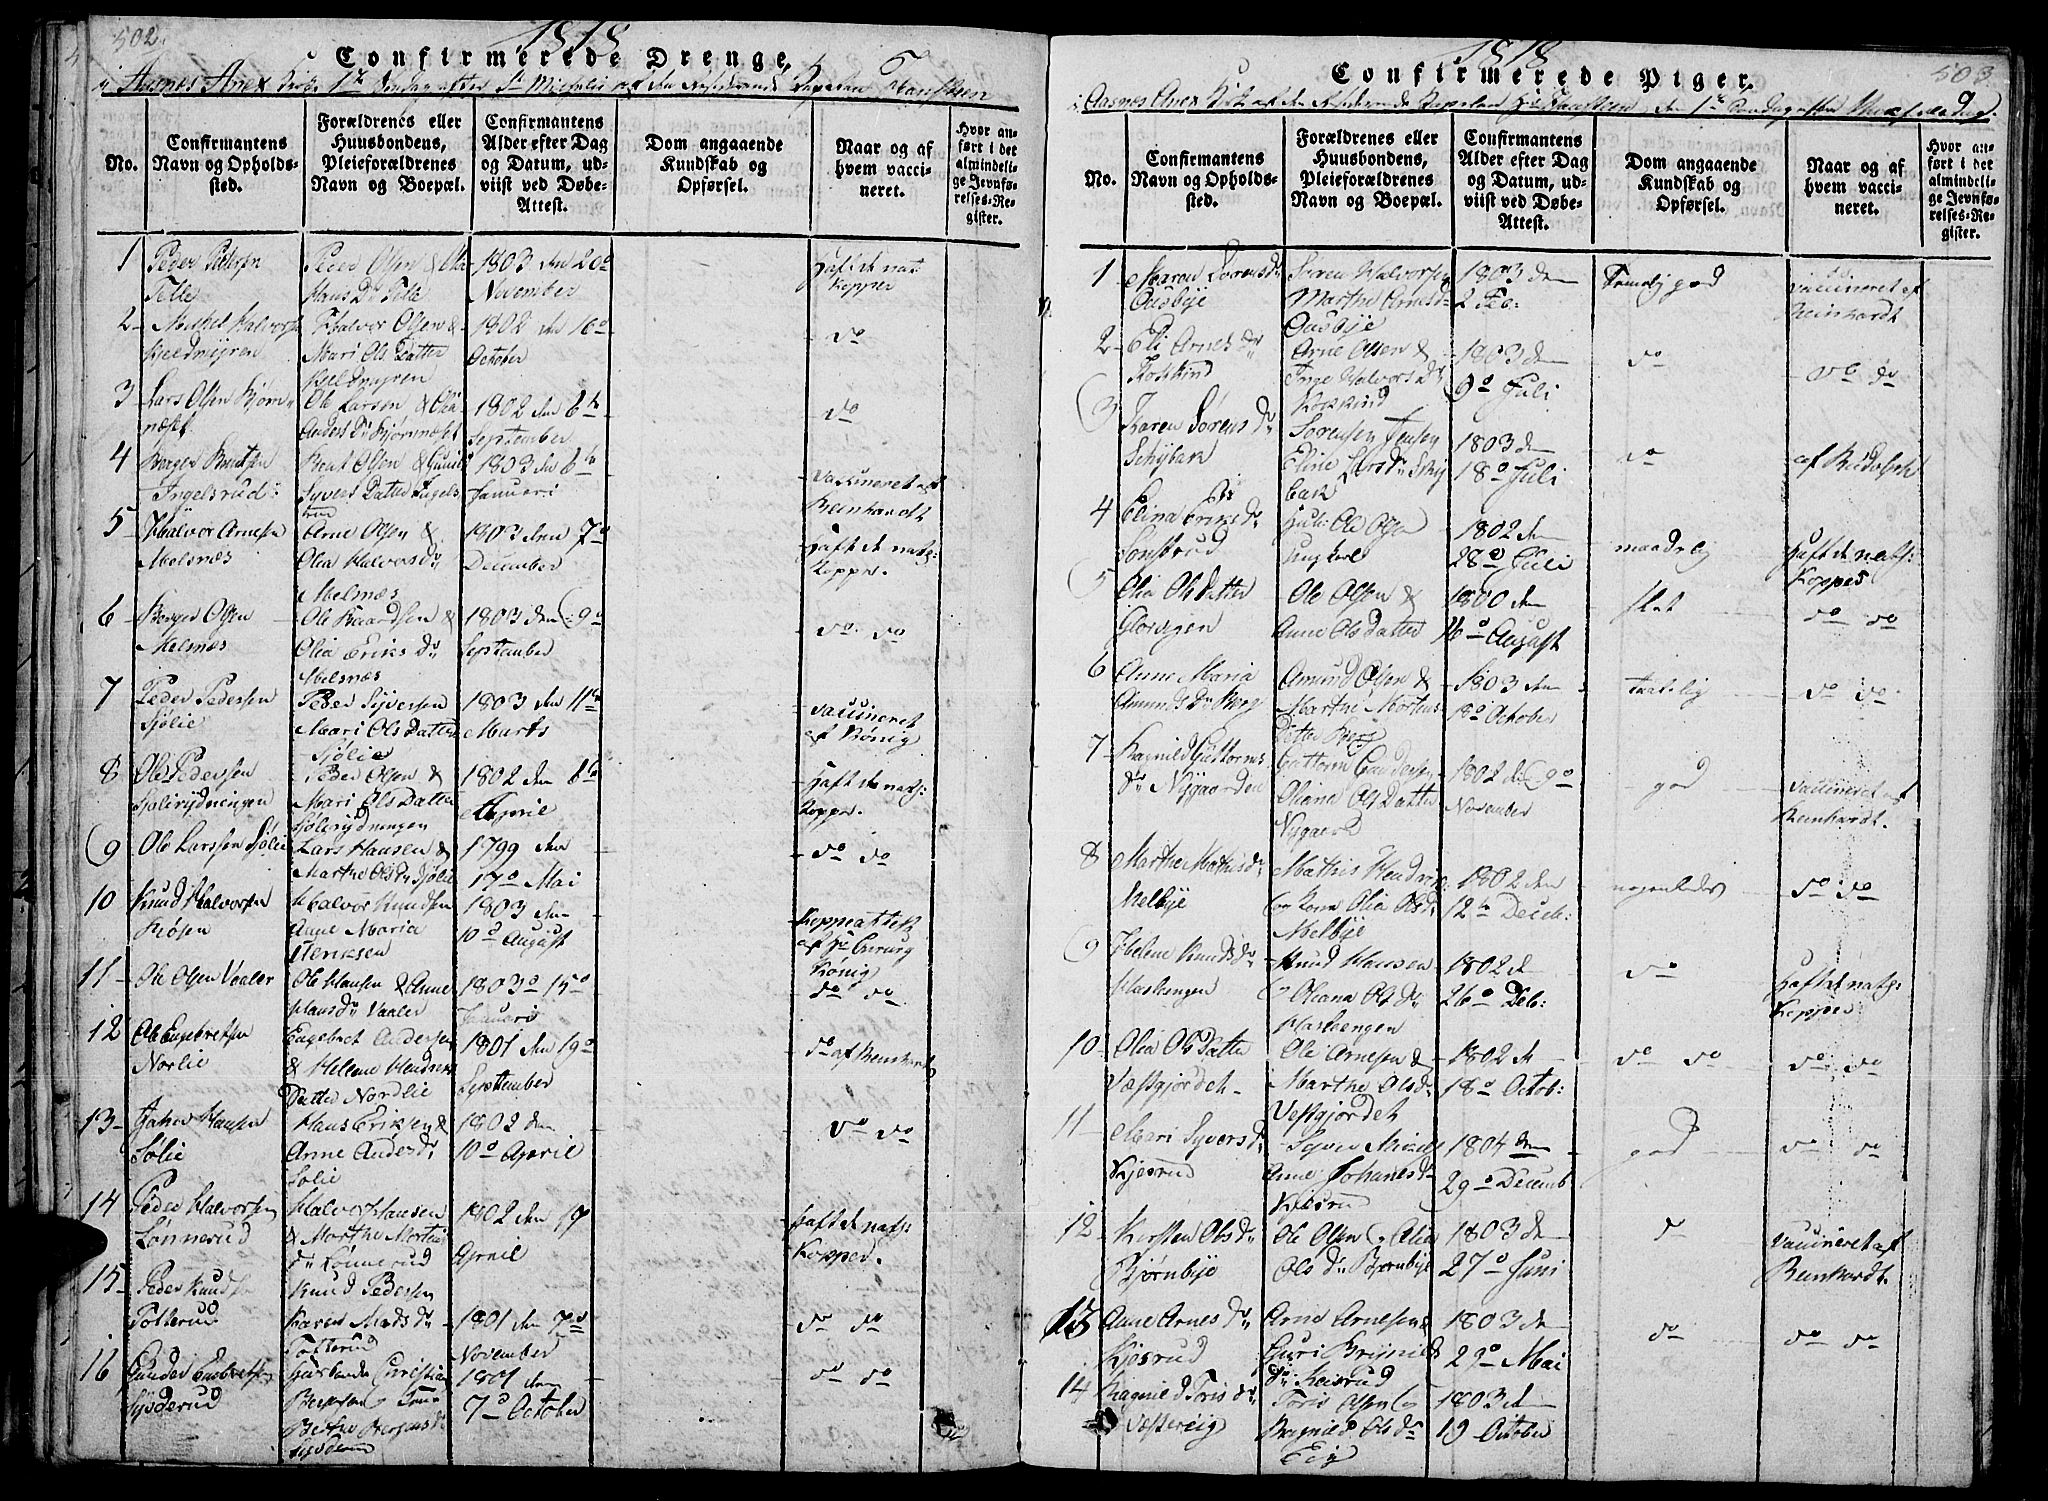 502
1818
Confirmerede Drenge,
i Aasnes Anex Kirke 1te Søndag efter St Michelis af den Residerende Capellan
No.
Confirmantens Navn og Opholds-sted.
Forældrenes eller Huusbondens, Pleieforældrenes Navn og Boepæl.
Confirmantens Alder efter Dag og Datum, ud-viist ved Døbe-Attest.
Dom angaaende Kundskab og Opførsel.
Naar og af hvem vacci-neret.
Hvor an-ført i det almindeli-ge Jevnfø-relses-Re-gister.
1 Peder Pedersen Telle
Peder Olsen & Hans Dr Telle
1803 den 20de November
Haft de nat Kopper
2 Michel Halvorsen Kjeldmyren
Halvor Olsen & Mari Ols Datter Kjeldmyren
1802 den 16de October
do
3 Lars Olsen Bjørnnæss
Ole Larsen & Anders Dr Bjørnnæset
1802 den 6te September
do
4 Berger Knutsen Ingelsrud
Knut Olsen & Syvers Datter Ingelsrud
1803 den 6te Januari
Vaccineret af Reinhardt
5 Halvor Arnesen Melsnæs
Arne Olsen & Olia Halvorsdr Melsnæs
1803 den 7de December
Haft de natl: Kopper.
6 Berger Olsen Melsnæs
Ole Baardsen & Olia Eriks Dr Melsnæs
1803 den 9de September
do do
7 Peder Pedersen Sjølie
Peder Syversen Mari Ols Datter Sjølie
1803 den 11te Marts
vaccineret af König
8 Ole Pedersen Sjølirydningen
Peder Olsen & Mari Ols Datter Sjølirydningen
1802 den 6te April
Haft de natl: Kopper.
9 Ole Larssen Sjølie
Lars Hansen & Marthe Ols Dr Sjølie
1799 den 17de Mai
do do
10 Knud Halvorsen Kiøsen
Halvor Knudsen Anne Maria Henriksen
1803 den 10de August
Koppeattest af Hr Chirurg König
11 Ole Olsen Vaaler
Ole Hansen & Anne Hansdr Vaaler
1803 15de Januari
do do
12 Ole Engebretsen Norlie
Engebret Andersen & Helene Hendriks Datter Nordlie
1801 den 19de September
do af Reinhardt
13 Hansen Sølie
Hans Eriksen & Anne Andersdr Sølie
1802 den 10de April
do do
14 Peder Halvorsen Lønnerud
Halvor Hansen & Marthe Mortens dr Lønnerud
1802 den 19 April
haft de natl: Kopper.
15 Peder Knudsen Totterud
Knud Pedersen Karen Mads dr Totterud
1801 den 7de November
do do
16 Gunder Engebretsen Sønderud
Christian
1801 den 7de October
do do
503
1818
Confirmerede Piger,
i Aasnes Anex Kirke af den Residerende Capellan den 1te Søndag efter
No.
Confirmantens Navn og Opholds-sted.
Forældrenes eller Huusbondens, Pleieforældrenes Navn og Boepæl.
Confirmantens Alder efter Dag og Datum, ud-viist ved Døbe-Attest.
Dom angaaende Kundskab og Opførsel.
Naar og af hvem vacci-neret.
Hvor an-ført i det almindeli-ge Jevnfø-relses-Re-gister.
1 Maren Sørens dr Oasbye
Søren Halvorsen Marthe Arnesd Oasbye
1803 den 2 Feb:
Temelig god
vaccineret af Reinhardt
2 Eli Arnes dr Roskind
Arne Olsen & Inge Halvors dr Roskind
1803 den 9de Juli
do
do do
3 Karen Sørens dr Skybak
Sørensen Jensen Eline Larsdr Skybak
1803 den 18de Juli
do
af Rudolph
4 Elina Eriks dr Sønsrud
Ole Olsen
1802 den 28de Juli
maadelig
Haft de natl: Kopper
5 Olia Ols Datter
Ole Olsen & Anne Ols Datter
1800 den 16de August
slet
do do
6 Anne Maria Amunds dr Berg
Amund Olsen & Marthe Mortens Datter Berg
1803 den 18de October
taalelig
do do
7 Ragnild Guttorms dr Nygaarden
Guttorm Gundersen Oliane Ols Datter Nygaard
1802 d: 9de November
god
vaccineret af Reinhardt.
8 Marthe Mathisdr Melbye
Mathis Hendrik og Kone Olia Olsdr Melbye
1802 den 12te Decb:
nogenledes
do do
9 Helene Knudsdr Haslengen
Knud Hansen & Oliana Olsdr Haslengen
1802 d 26de Feb:
do
Haft de natl: Kopper
10 Olia Ols Datter Væstgjordet
Ole Arnesen & Marthe Olsdr Vestgjordet
1802 d 18de Octob:
do do
do do
11 Mari Syversdr Kjesrud
Syver Anne Johanesdr Kjesrud
1804 den 29de Decemb
god
do do
12 Kersten Olsdr Bjørnbye
Ole Olsen & Olia Ols dr Bjørnbye
1803 d 27de Juni
do
Vaccineret af Reinhardt.
13 Anne Arnes dr Kjesrud
Arne Arnesen & Guri Brynild dr Keisrud
1803 d 29de Mai
do
do do
14 Ragnild Toris dr Vestereig
Toris Olsen & Ragnild Olsdr Eig
1803 d 19 October